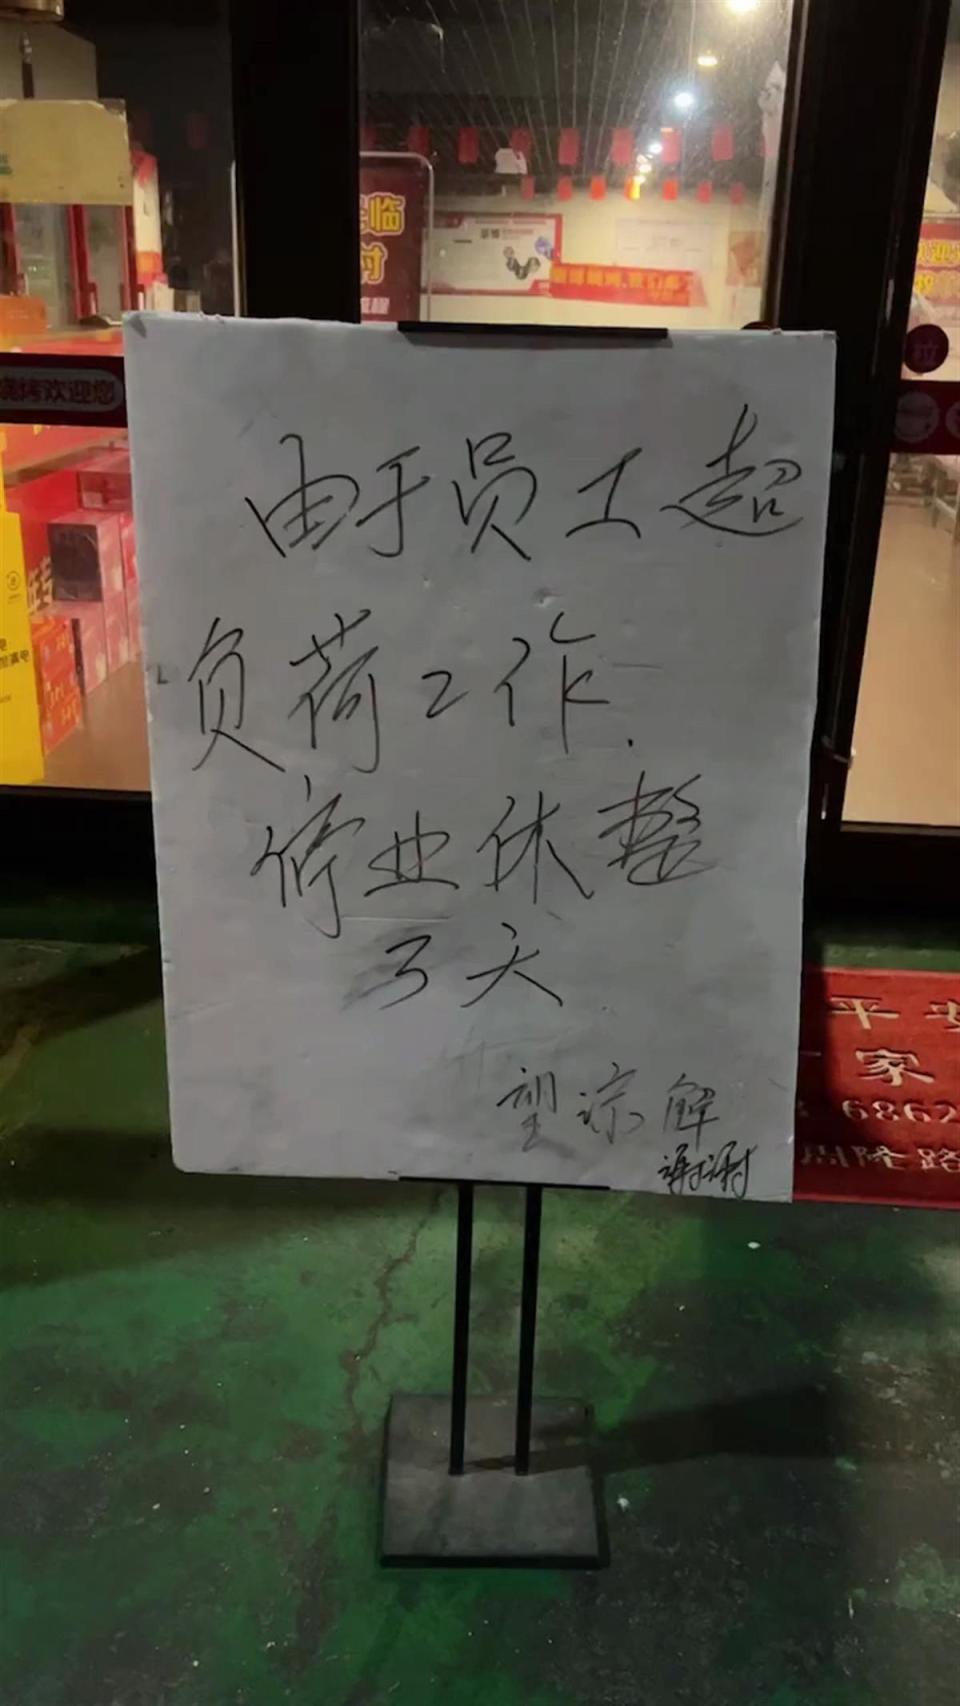 由于员工超
负荷工作.
停业休整
3天
望谅解
谢谢
烧烤欢迎您
临
平安
家
6862
周隆路